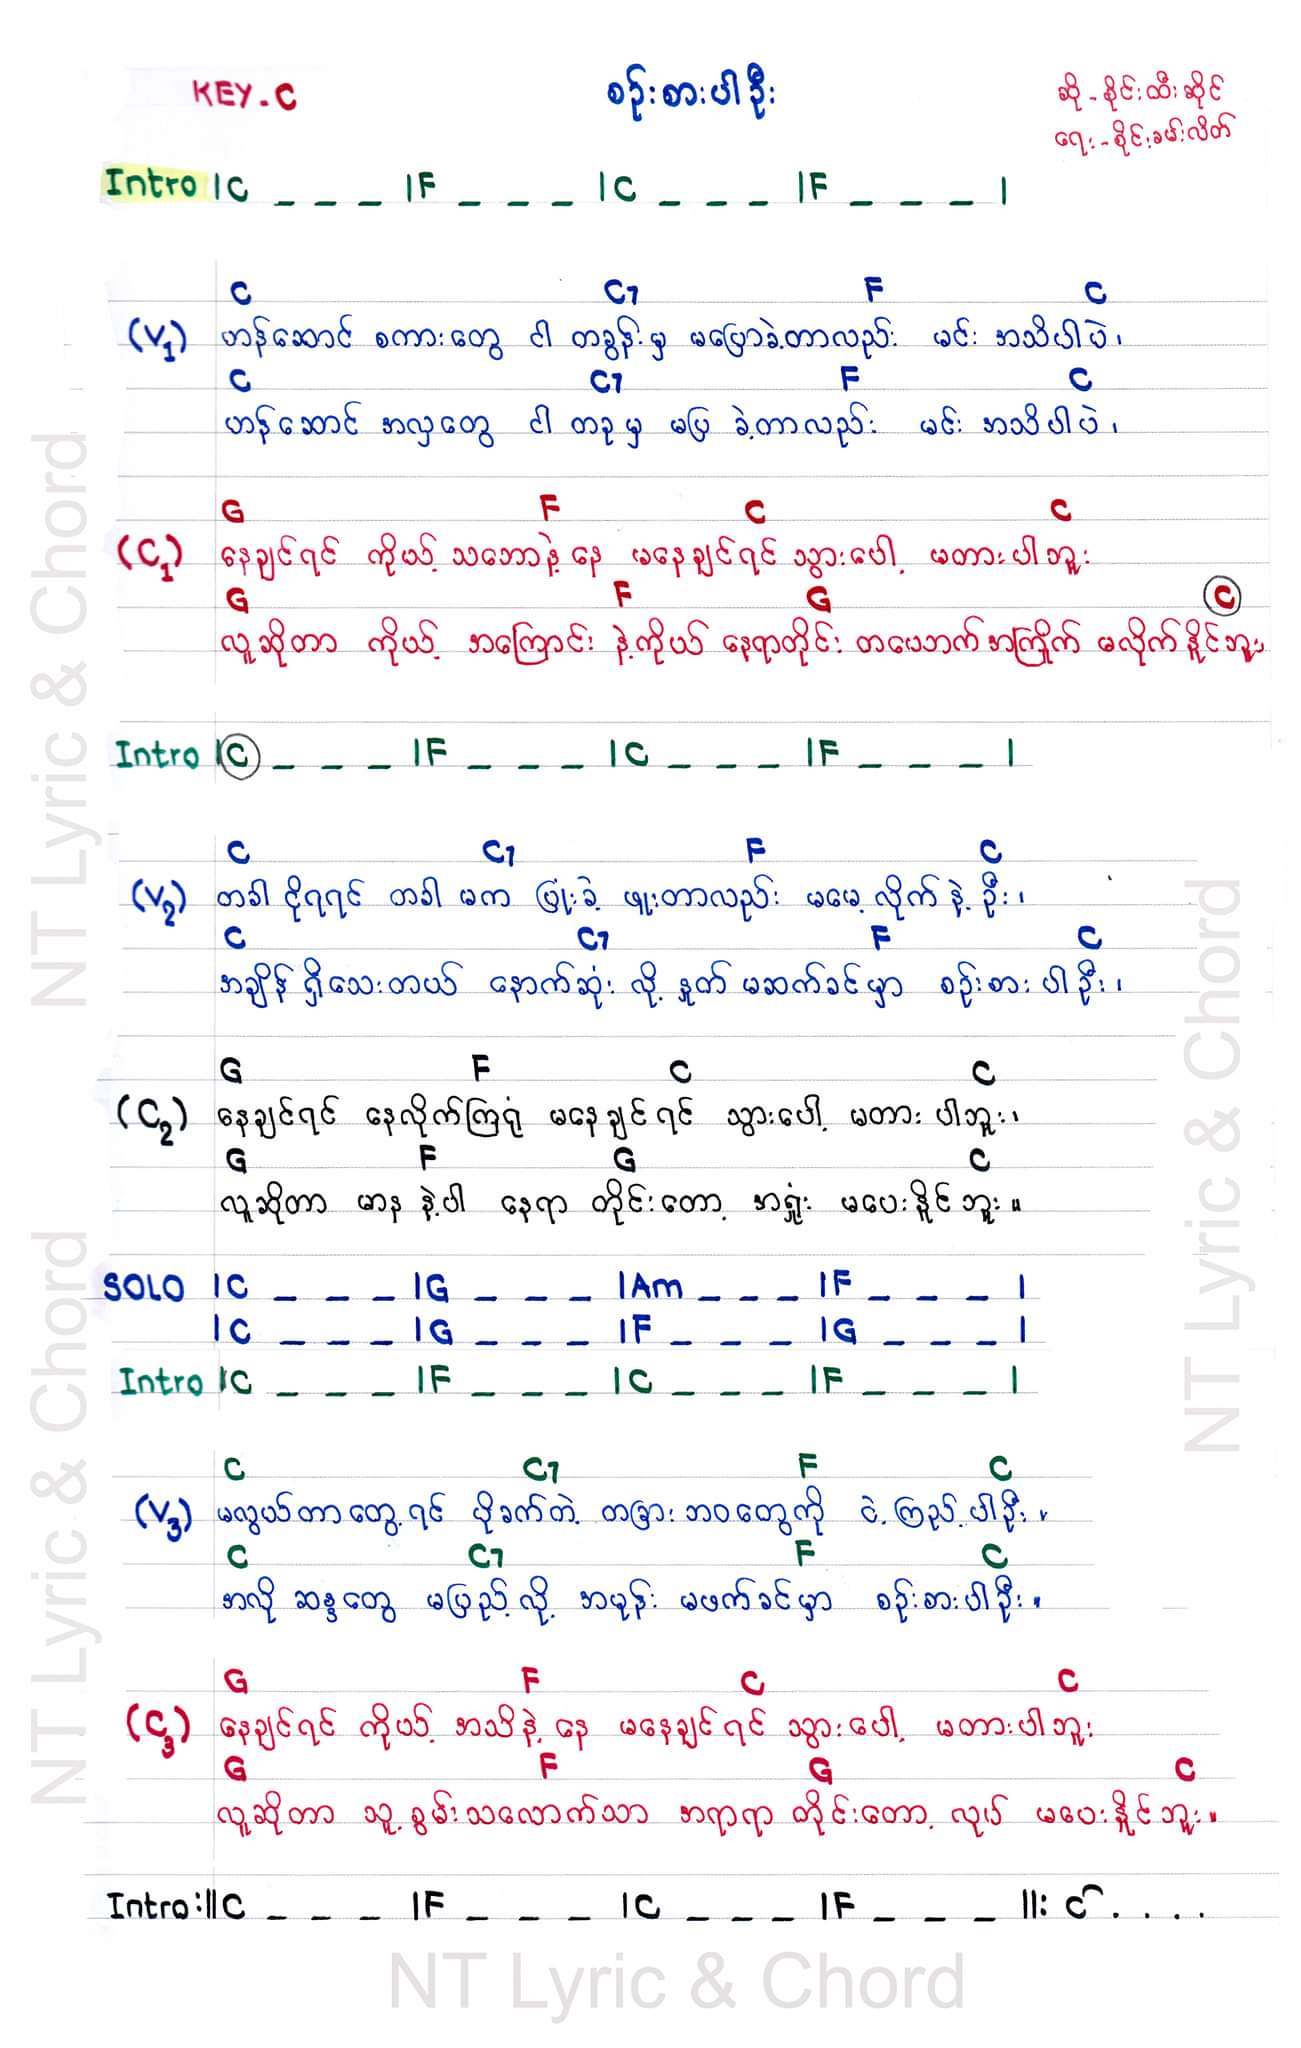 KEY. C
စဉ်းစားပါဦး
ဆို - စိုင်းထီးဆိုင်
ရေး - စိုင်းခမ်းလိတ်
Intro |C _ _ _ |F _ _ _ |C _ _ _ |F _ _ _ |
C C7 F C
(V1) ဟန်ဆောင် စကားတွေ ငါ တခွန်းမှ မပြောခဲ့တာလည်း မင်း အသိပါပဲ၊
C C7 F C
ဟန်ဆောင် အလှတွေ ငါ တခုမှ မပြ ခဲ့တာလည်း မင်း အသိပါပဲ၊
G F C C
(C1) နေချင်ရင် ကိုယ့် သဘောနဲ့ နေ မနေချင်ရင် သွားပေါ့ မတားပါဘူး
G F G C
လူဆိုတာ ကိုယ့် အကြောင်း နဲ့ကိုယ် နေရာတိုင်း တဖေဘက်အကြိုက် မလိုက်နိုင်ဘူး
Intro |C _ _ _ |F _ _ _ |C _ _ _ |F _ _ _ |
C C7 F C
(V2) တခါ ငိုရရင် တခါ မက ပြုံးခဲ့ ဖူးတာလည်း မမေ့ လိုက် နဲ့ ဦး၊
C C7 F C
အချိန် ရှိသေးတယ် နောက်ဆုံး လို့ နှုတ် မဆက်ခင်မှာ စဉ်းစား ပါဦး၊
G F C C
(C2) နေချင်ရင် နေလိုက်ကြရုံ မနေချင်ရင် သွားပေါ့ မတား ပါဘူး၊
G F G C
လူဆိုတာ မာန နဲ့ပါ နေရာ တိုင်းတော့ အရှုံး မပေးနိူင်ဘူး။
SOLO |C _ _ _ |G _ _ _ |Am _ _ _ |F _ _ _ |
|C _ _ _ |G _ _ _ |F _ _ _ |G _ _ _ |
Intro |C _ _ _ |F _ _ _ |C _ _ _ |F _ _ _ |
C C7 F C
(V3) မလွယ်တာတွေ့ရင် ပိုခက်တဲ့ တခြားဘဝတွေကို ငဲ့ကြည့်ပါဦး။
C C7 F C
အလို ဆန္ဒတွေ မပြည့်လို့ အမုန်း မဖက်ခင်မှာ စဉ်းစားပါဦး။
G F C C
(C3) နေချင်ရင် ကိုယ့် အသိနဲ့ နေ မနေချင်ရင် သွားပေါ့ မတားပါဘူး
G F G C
လူဆိုတာ သူ့စွမ်းသလောက်သာ အရာရာ တိုင်းတော့ လုပ် မပေးနိူင်ဘူး။
Intro :||C _ _ _ |F _ _ _ |C _ _ _ |F _ _ _ ||: C . . . .
NT Lyric & Chord
NT Lyric & Chord
NT Lyric & Chord
NT Lyric & Chord
NT Lyric & Chord